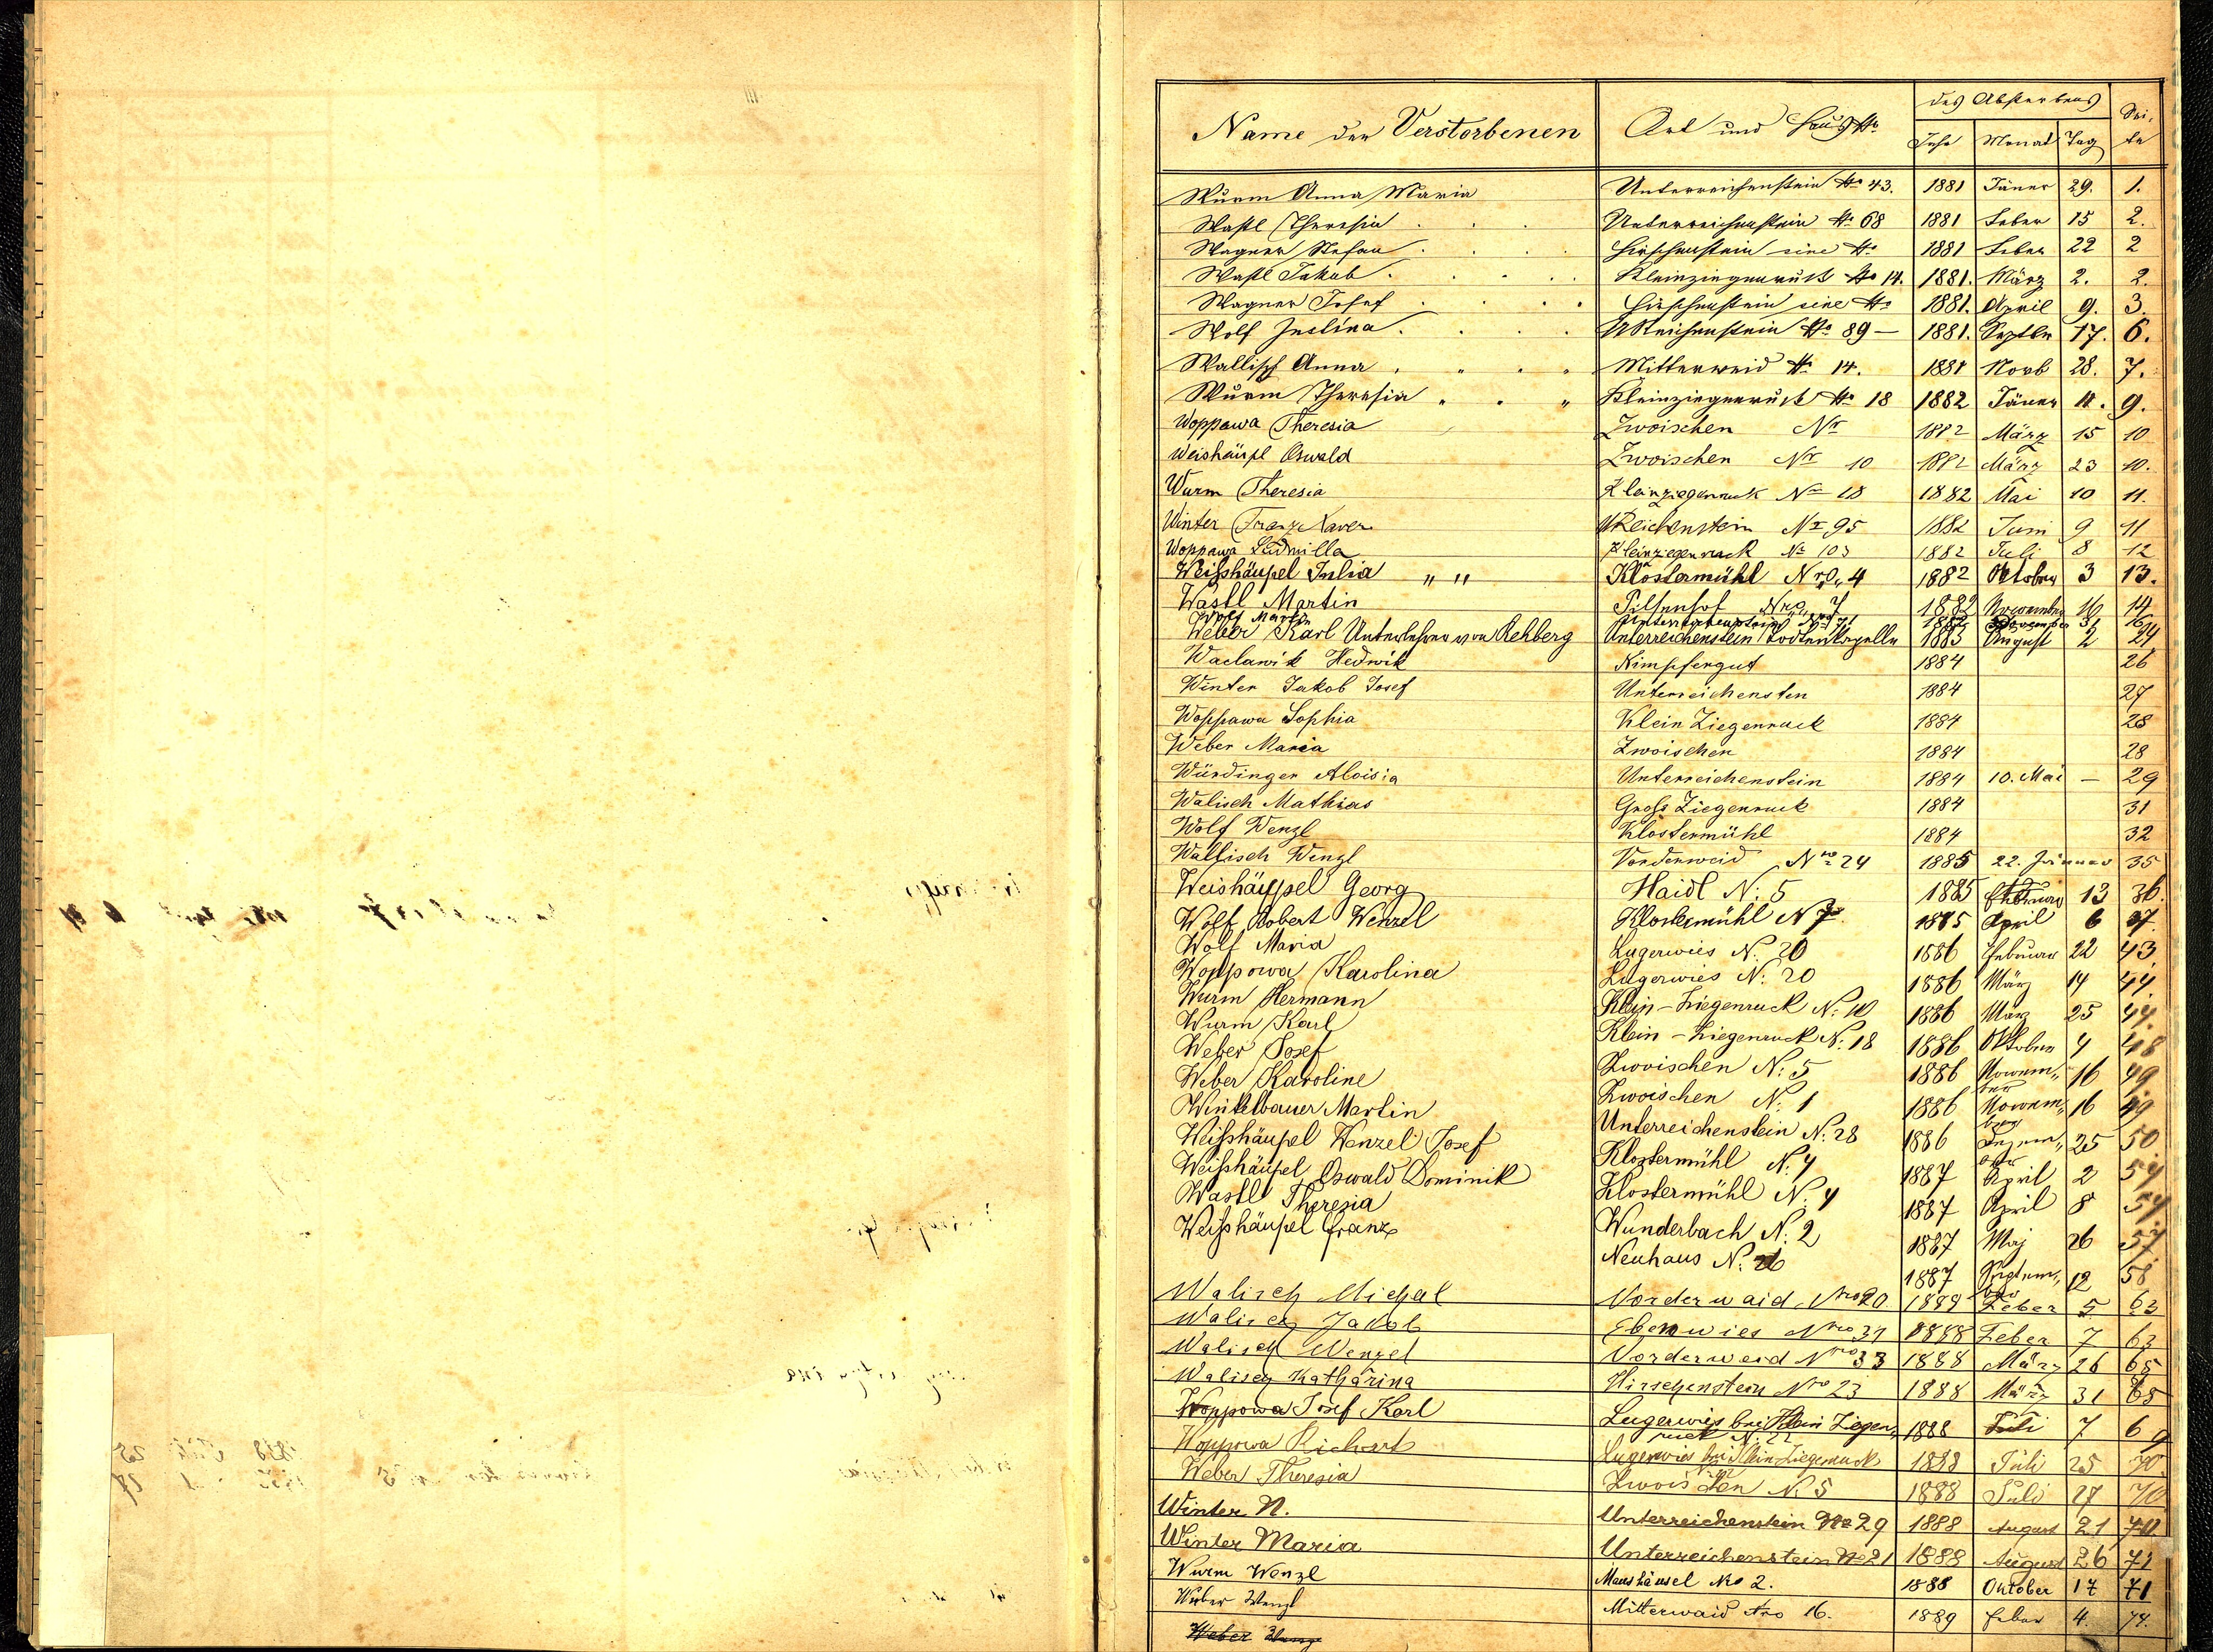 des Absterbens
Name der Verstorbenen Ort und Haus No Jahr Monat Tag Seite
Wurm Anna Maria Unterreichenstein No 43. 1881 Jäner 29. 1.
Wastl Theresia . . . Unterreichenstein No 68 1881 Feber 15 2.
Wagner Stefan . . . Hirschenstein sine No 1881 Feber 22 2
Wastl Jakob . . . . Kleinziegenruck No 14. 1881. März 2. 2.
Wagner Josef . . . . Hirschenstein sine No 1881. April 9. 3.
Wolf Paulina . . . . UReichenstein No 89 – 1881. Septbr 17. 6.
Wallisch Anna . " . " Mitterweid No 14. 1881 Novb 28. 7.
Wurm Theresia " . " Kleinziegenruck No 18 1882 Jäner 11. 9.
Woppawa Theresia Zwoischen Nr 1882 März 15 10
Weishäupl Oswald Zwoischen Nr 10 1882 März 23 10.
Wurm Theresia Kleinziegenruck Nr 18 1882 Mai 10 11.
Winter Franz Xaver UReichenstein Nr 95 1882 Juni 9 11
Woppawa Ludmilla Kleinziegenruck Nr 103 1882 Juli 8 12
Weißhäupel Julia " " Klöstermühl Nro. 4 1882 Oktober 3 13.
Wastl Martin Pilsenhof Nro. 7 1882 November 16 14
Wolf Martin Unterreichenstein 1882 31 16
Weber Karl Unterlehrer von Rehberg Unterreichenstein Todtenkapelle 1883 August 2 24
Waclawik Hedwik Kimpfergut 1884 26
Winter Jakob Josef Unterreichensten 1884 27
Woppawa Sophia Klein Ziegenruck 1884 28
Weber Maria Zwoischen 1884 28
Würdinger Aloisia Unterreichenstein 1884 10. Mai – 29
Walisch Mathias Groß Ziegenruck 1884 31
Wolf Wenzl Klostermühl 1884 32
Wallisch Wenzl Vorderweid Nro 24 1885 22. Jänner 35
Weishäupel Georg Haidl N: 5 1885 Februar 13 36.
Wolf Robert Wenzel Klostermühl N 7 1885 April 6 37.
Wolf Maria Lugerwies N. 20 1886 Februar 22 43.
Woppowa Karolina Lugerwies N: 20 1886 März 14 44.
Wurm Hermann Klein-Ziegenruck N: 10 1886 März 25 44.
Wurm Karl Klein-Ziegenruck N: 18 1886 Oktober 4 48
Weber Josef Zwoischen N: 5 1886 November 16 49
Weber Karoline Zwoischen N: 1 1886 November 16 49
Winkelbauer Martin Unterreichenstein N: 28 1886 Dezember 25 50.
Weißhäupel Wenzel Josef Klostermühl N: 4 1887 April 2 54
Weißhäupel Oswald Dominik Klostermühl N. 4 1887 April 8 54
Wastl Theresia Wunderbach N: 2 1887 Maj 26 57.
Weißhäupel Franz Neuhaus N: 26 1887 September 12 58
Walisch Michal Vorderwaid Nro 20 1888 Feber 5 63
Walisch Jakob Ebenwies Nro 31 1888 Feber 7 63
Walisch Wenzel Vorderweid Nro 33 1888 März 26 65
Walisch Katharina Hirschenstein Nro 23 1888 März 31 65
Woppowa Josef Karl Lugerwies bei Klein Ziegenruck N: 22 1888 Juli 7 69
Woppowa Richart Lugerwies bei Klein Ziegenruck 1888 Juli 25 70.
Weber Theresia Zwoischen N. 5 1888 Juli 27 70
Winter N. Unterreichenstein No 29 1888 August 21 70
Winter Maria Unterreichenstein No 21 1888 August 26 71
Wurm Wenzl Maushäusel Nro 2. 1888 Oktober 17 71
Weber Wenzl Mitterwaid Nro 16. 1889 Feber 4. 74.
Weber Wenzl